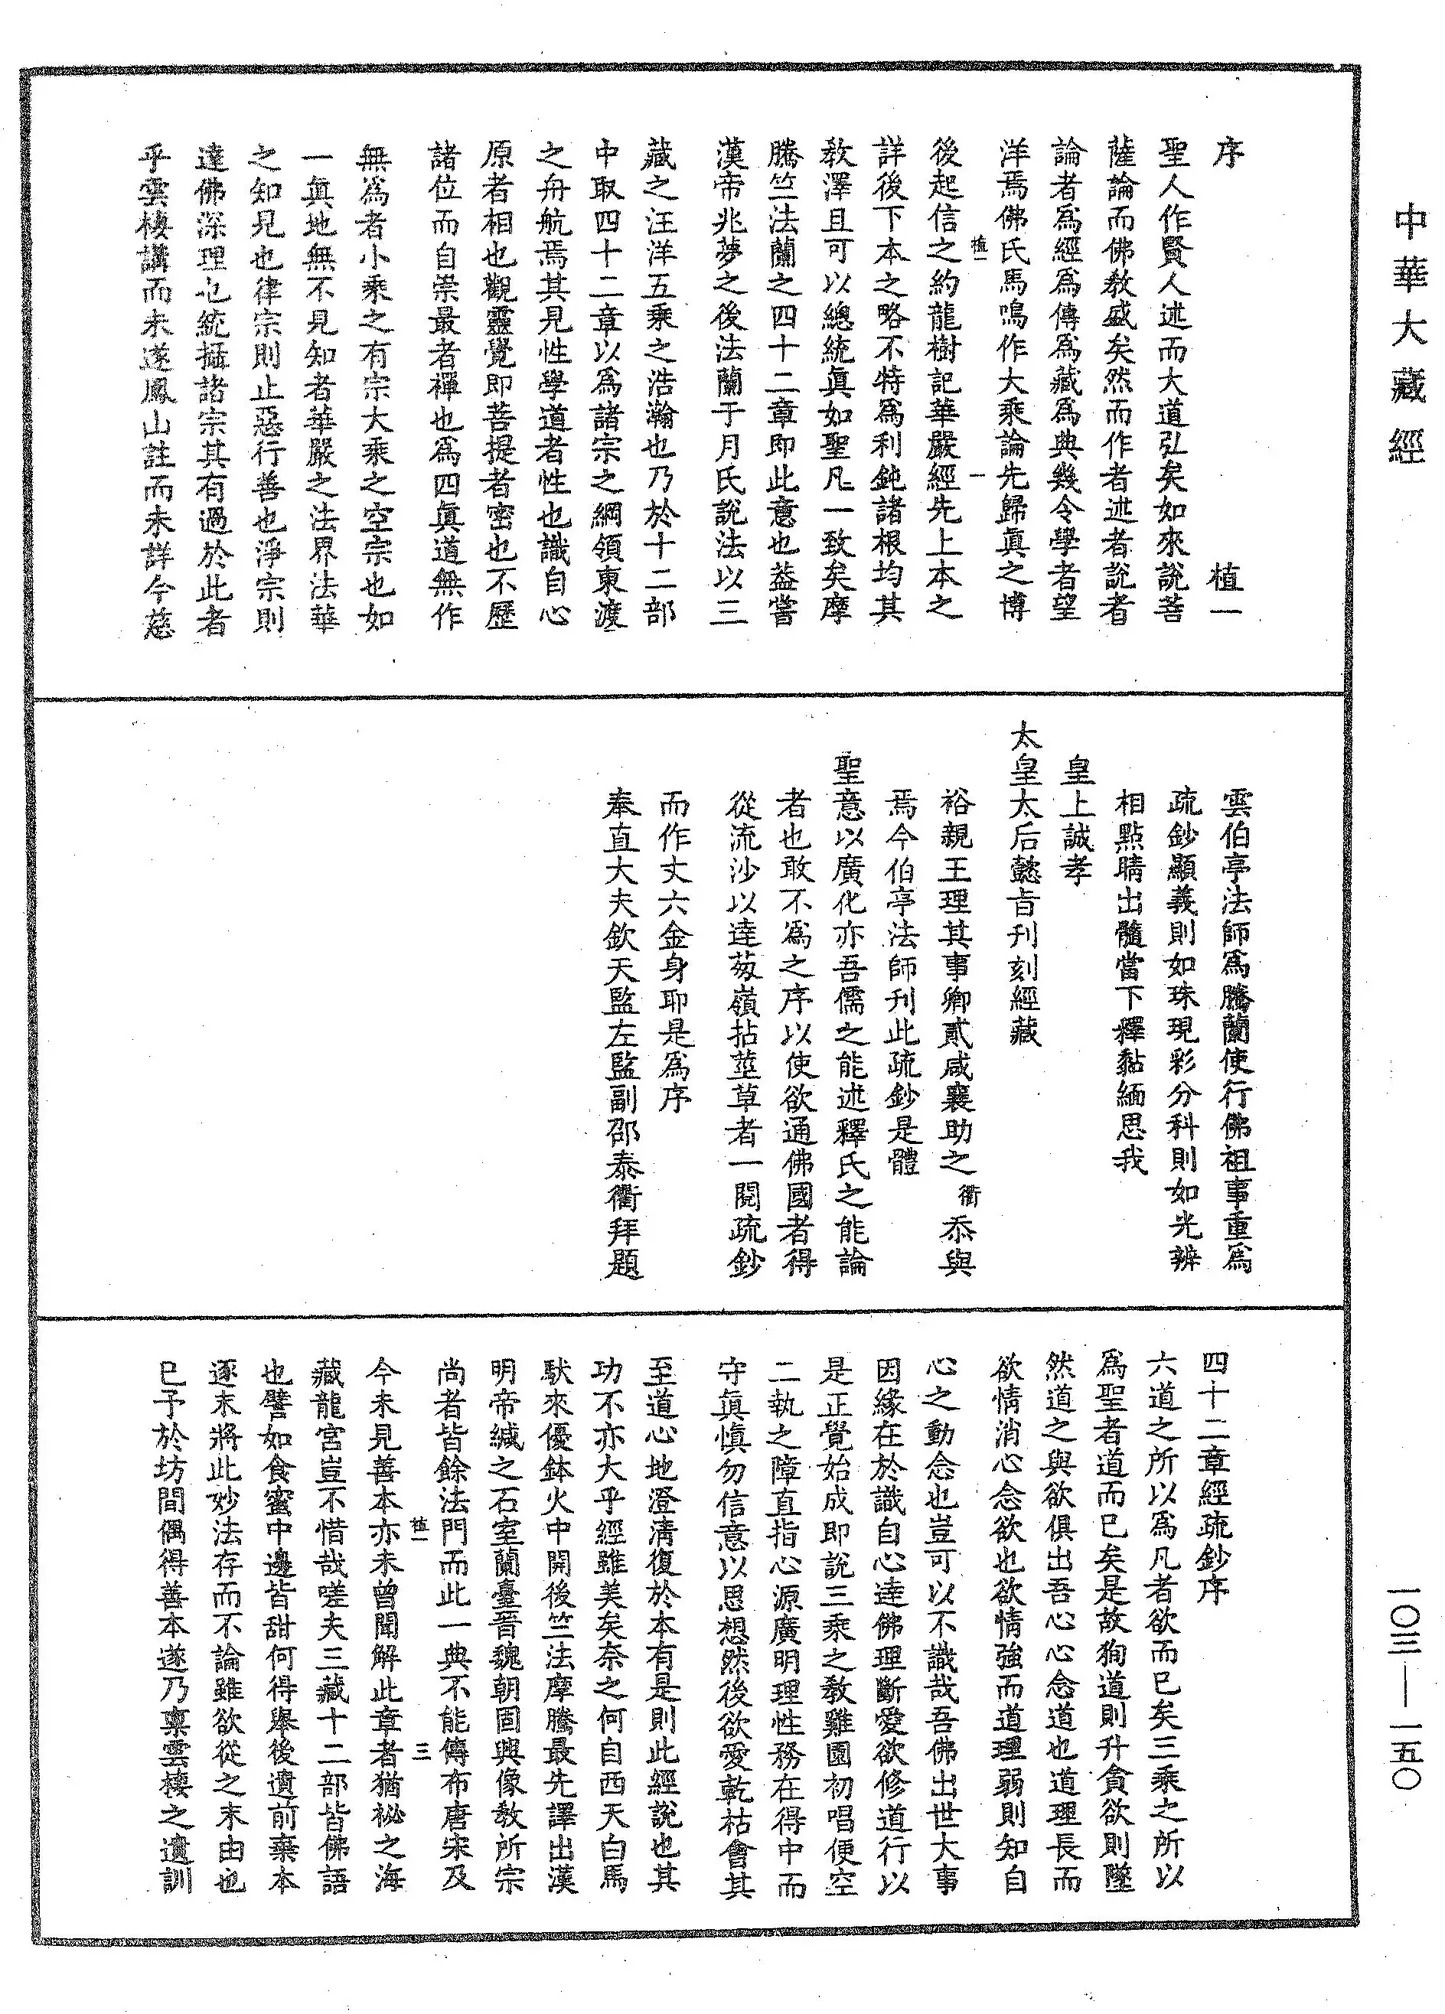 中華大藏經
序 植一
聖人作賢人述而大道弘矣如來說菩
薩論而佛教盛矣然而作者述者說者
論者爲經爲傳爲藏爲典幾令學者望
洋焉佛氏馬鳴作大乘論先歸眞之博
植一 一
後起信之約龍樹記華嚴經先上本之
詳後下本之略不特爲利鈍諸根均其
教澤且可以總統眞如聖凡一致矣摩
騰竺法蘭之四十二章即此意也葢嘗
漢帝兆夢之後法蘭于月氏說法以三
藏之汪洋五乘之浩瀚也乃於十二部
中取四十二章以爲諸宗之綱領東渡
之舟航焉其見性學道者性也識自心
原者相也觀靈覺即菩提者密也不歷
諸位而自崇最者禪也爲四眞道無作
無爲者小乘之有宗大乘之空宗也如
一眞地無不見知者華嚴之法界法華
之知見也律宗則止惡行善也淨宗則
達佛深理也統攝諸宗其有過於此者
乎雲棲講而未遂鳳山註而未詳今慈
雲伯亭法師爲騰蘭使行佛祖事重爲
疏鈔顯義則如珠現彩分科則如光辨
相點睛出髓當下釋黏緬思我
皇上誠孝
太皇太后懿旨刊刻經藏
裕親王理其事卿貳咸襄助之衢忝與
焉今伯亭法師刊此疏鈔是體
聖意以廣化亦吾儒之能述釋氏之能論
者也敢不爲之序以使欲通佛國者得
從流沙以達葱嶺拈莖草者一閱疏鈔
而作丈六金身耶是爲序
奉直大夫欽天監左監副邵泰衢拜題
四十二章經疏鈔序
六道之所以爲凡者欲而已矣三乘之所以
爲聖者道而已矣是故狥道則升貪欲則墜
然道之與欲俱出吾心心念道也道理長而
欲情消心念欲也欲情強而道理弱則知自
心之動念也豈可以不識哉吾佛出世大事
因緣在於識自心達佛理斷愛欲修道行以
是正覺始成即說三乘之教雞園初唱便空
二執之障直指心源廣明理性務在得中而
守眞愼勿信意以思想然後欲愛乾枯會其
至道心地澄清復於本有是則此經說也其
功不亦大乎經雖美矣奈之何自西天白馬
馱來優鉢火中開後竺法摩騰最先譯出漢
明帝緘之石室蘭臺晉魏朝固興像教所宗
尚者皆餘法門而此一典不能傳布唐宋及
植一 三
今未見善本亦未曾聞解此章者猶祕之海
藏龍宮豈不惜哉嗟夫三藏十二部皆佛語
也譬如食蜜中邊皆甜何得舉後遺前棄本
逐末將此妙法存而不論雖欲從之末由也
已予於坊間偶得善本遂乃稟雲棲之遺訓
一〇三—一五〇